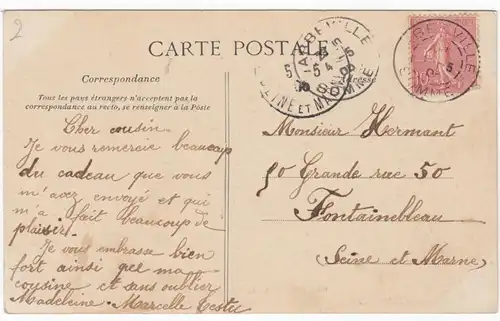 2
CARTE POSTALE
Correspondance
Adresse
Tous les pays étrangers n'acceptent pas la
correspondance au recto, se renseigner à la Poste
ABBEVILLE
SOMME
SEINE ET MARNE
ABBEVILLE
SOMME
Cher cousin
Je vous remercie beaucoup
du cadeau que vous
m'avez envoyé et qui
m'a fait beaucoup de
plaisir.
Je vous embrasse bien
fort ainsi que ma
cousine et sans oublier
Madeleine. Marcelle Testu
Monsieur Hermant
50 Grande rue 50
Fontainebleau
(Seine et Marne)